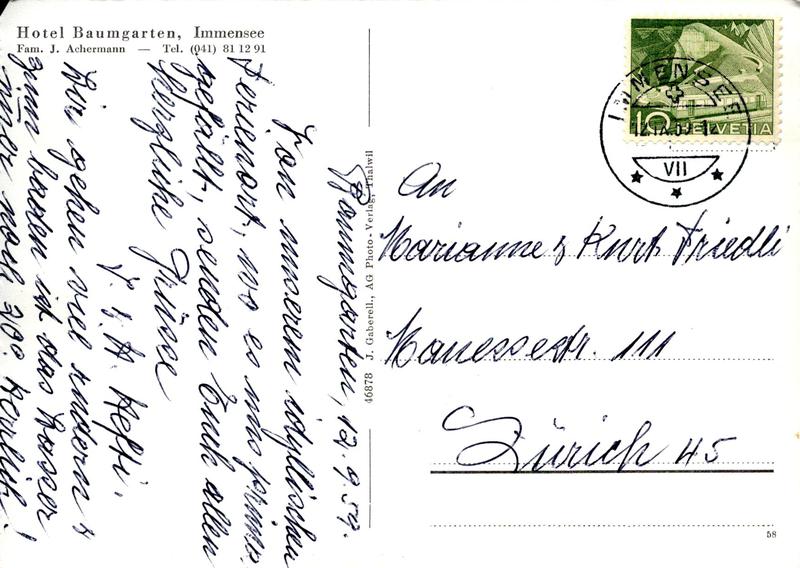 Hotel Baumgarten, Immensee
Fam. J. Achermann — Tel. (041) 81 12 91
Baumgarten, 12.9.59.
Von unserem idyllischen
Ferienort, wo es uns prima
gefällt, senden Euch allen
herzliche Grüsse
& H. Hefti.
Wir gehen viel rudern &
zum baden ist das Wasser
immer noch 20°. herrlich!
46878 J. Gaberell., AG Photo-Verlag, Thalwil
10 HELVETIA
IMMENSEE
12.IX.59.-12
VII
An
Marianne & Kurt Friedli
Manessestr. 111
Zürich 45
58